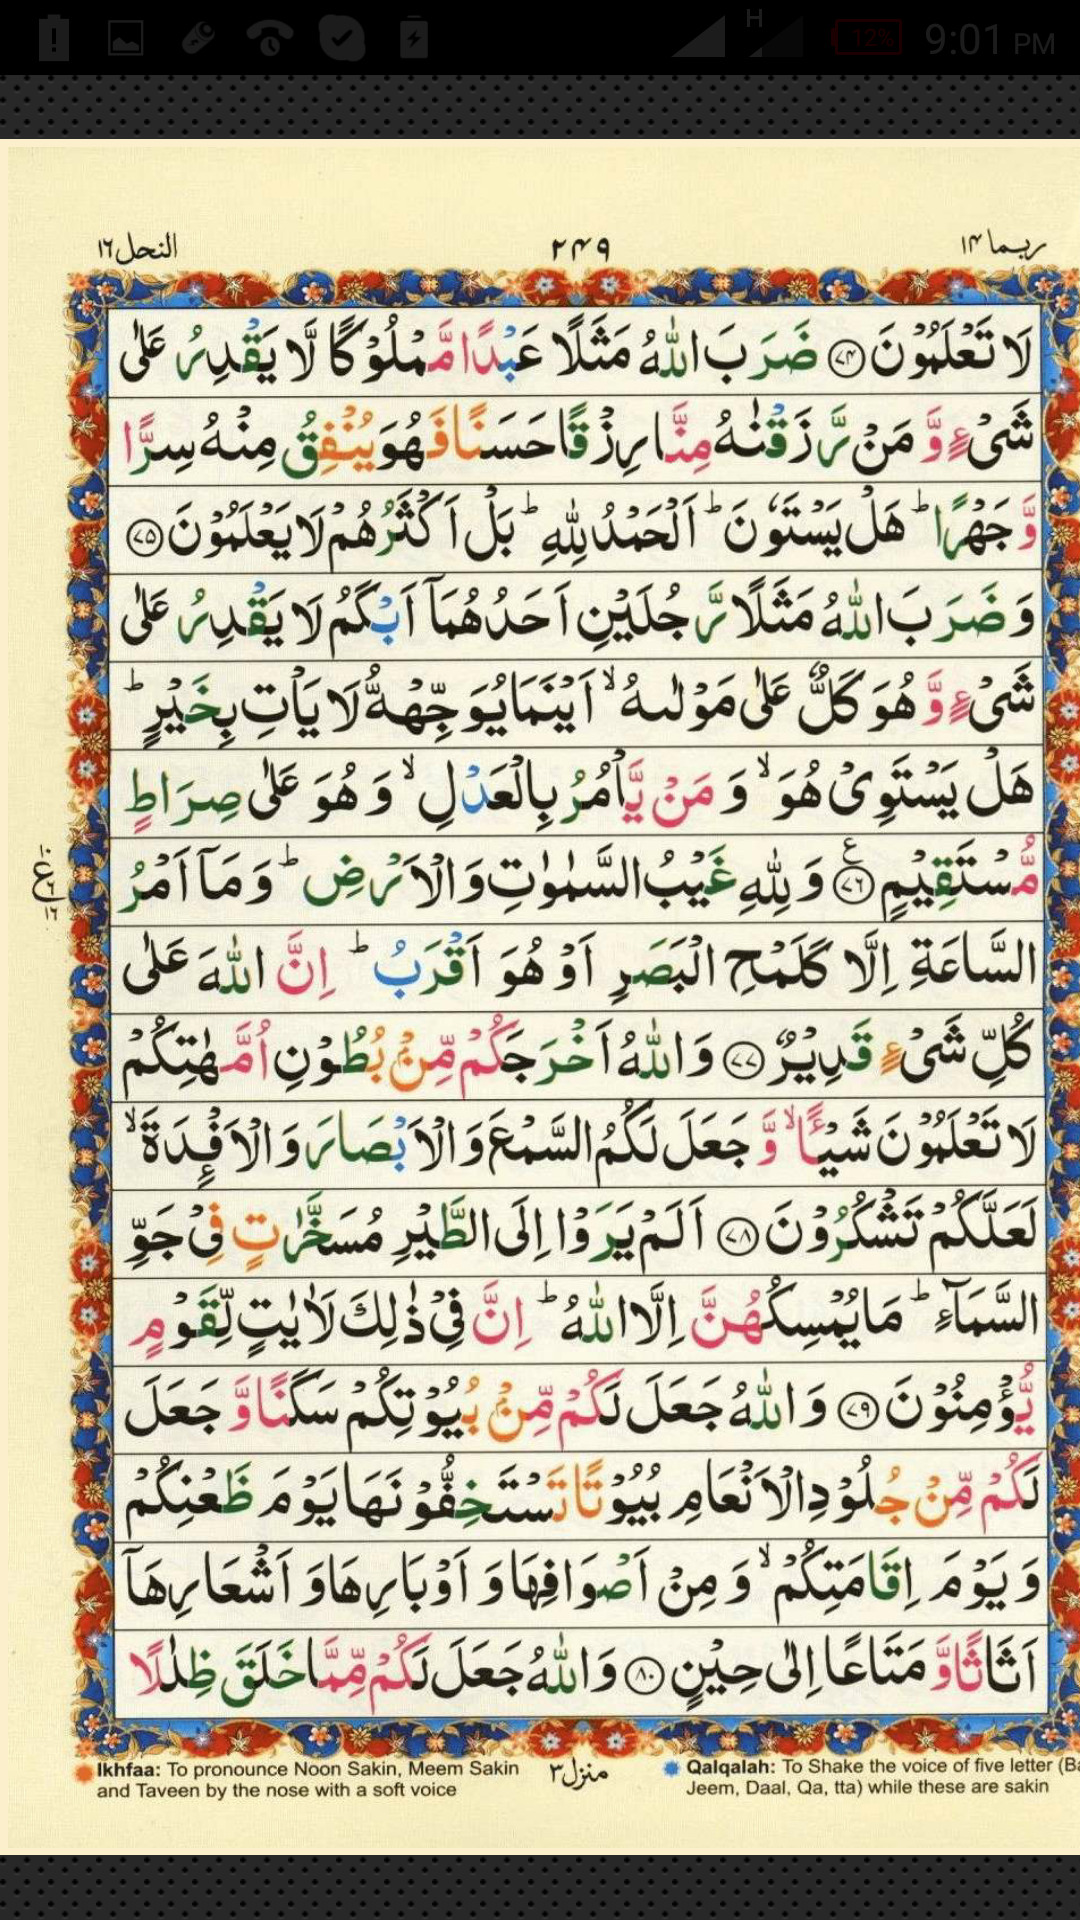 H 12% 9:01 PM
ربما ١٤ ٢٤٩ النحل ١٦
لَا تَعْلَمُوْنَ ﴿۷۴﴾ ضَرَبَ اللّٰهُ مَثَلًا عَبْدًا مَّمْلُوْكًا لَّا يَقْدِرُ عَلٰى
شَىْءٍ وَّ مَنْ رَّزَقْنٰهُ مِنَّا رِزْقًا حَسَنًا فَهُوَ يُنْفِقُ مِنْهُ سِرًّا
وَّ جَهْرًا ؕ هَلْ يَسْتَوٗنَ ؕ اَلْحَمْدُ لِلّٰهِ ؕ بَلْ اَكْثَرُهُمْ لَا يَعْلَمُوْنَ ﴿۷۵﴾
وَ ضَرَبَ اللّٰهُ مَثَلًا رَّجُلَيْنِ اَحَدُهُمَاۤ اَبْكَمُ لَا يَقْدِرُ عَلٰى
شَىْءٍ وَّ هُوَ كَلٌّ عَلٰى مَوْلٰىهُ ۙ اَيْنَمَا يُوَجِّهْهُّ لَا يَاْتِ بِخَيْرٍ ؕ
هَلْ يَسْتَوِىْ هُوَ ۙ وَ مَنْ يَّاْمُرُ بِالْعَدْلِ ۙ وَ هُوَ عَلٰى صِرَاطٍ
مُّسْتَقِيْمٍ ﴿۷۶﴾ ع وَ لِلّٰهِ غَيْبُ السَّمٰوٰتِ وَ الْاَرْضِ ؕ وَ مَاۤ اَمْرُ
السَّاعَةِ اِلَّا كَلَمْحِ الْبَصَرِ اَوْ هُوَ اَقْرَبُ ؕ اِنَّ اللّٰهَ عَلٰى
كُلِّ شَىْءٍ قَدِيْرٌ ﴿۷۷﴾ وَ اللّٰهُ اَخْرَجَكُمْ مِّنْۢ بُطُوْنِ اُمَّهٰتِكُمْ
لَا تَعْلَمُوْنَ شَيْـًٔا ۙ وَّ جَعَلَ لَكُمُ السَّمْعَ وَ الْاَبْصَارَ وَ الْاَفْـِٕدَةَ ۙ
لَعَلَّكُمْ تَشْكُرُوْنَ ﴿۷۸﴾ اَلَمْ يَرَوْا اِلَى الطَّيْرِ مُسَخَّرٰتٍ فِىْ جَوِّ
السَّمَآءِ ؕ مَا يُمْسِكُهُنَّ اِلَّا اللّٰهُ ؕ اِنَّ فِىْ ذٰلِكَ لَاٰيٰتٍ لِّقَوْمٍ
يُّؤْمِنُوْنَ ﴿۷۹﴾ وَ اللّٰهُ جَعَلَ لَكُمْ مِّنْۢ بُيُوْتِكُمْ سَكَنًا وَّ جَعَلَ
لَكُمْ مِّنْ جُلُوْدِ الْاَنْعَامِ بُيُوْتًا تَسْتَخِفُّوْنَهَا يَوْمَ ظَعْنِكُمْ
وَ يَوْمَ اِقَامَتِكُمْ ۙ وَ مِنْ اَصْوَافِهَا وَ اَوْبَارِهَا وَ اَشْعَارِهَاۤ
اَثَاثًا وَّ مَتَاعًا اِلٰى حِيْنٍ ﴿۸۰﴾ وَ اللّٰهُ جَعَلَ لَكُمْ مِّمَّا خَلَقَ ظِلٰلًا
Ikhfaa: To pronounce Noon Sakin, Meem Sakin
and Taveen by the nose with a soft voice
منزل ٣
Qalqalah: To Shake the voice of five letter (Ba
Jeem, Daal, Qa, tta) while these are sakin